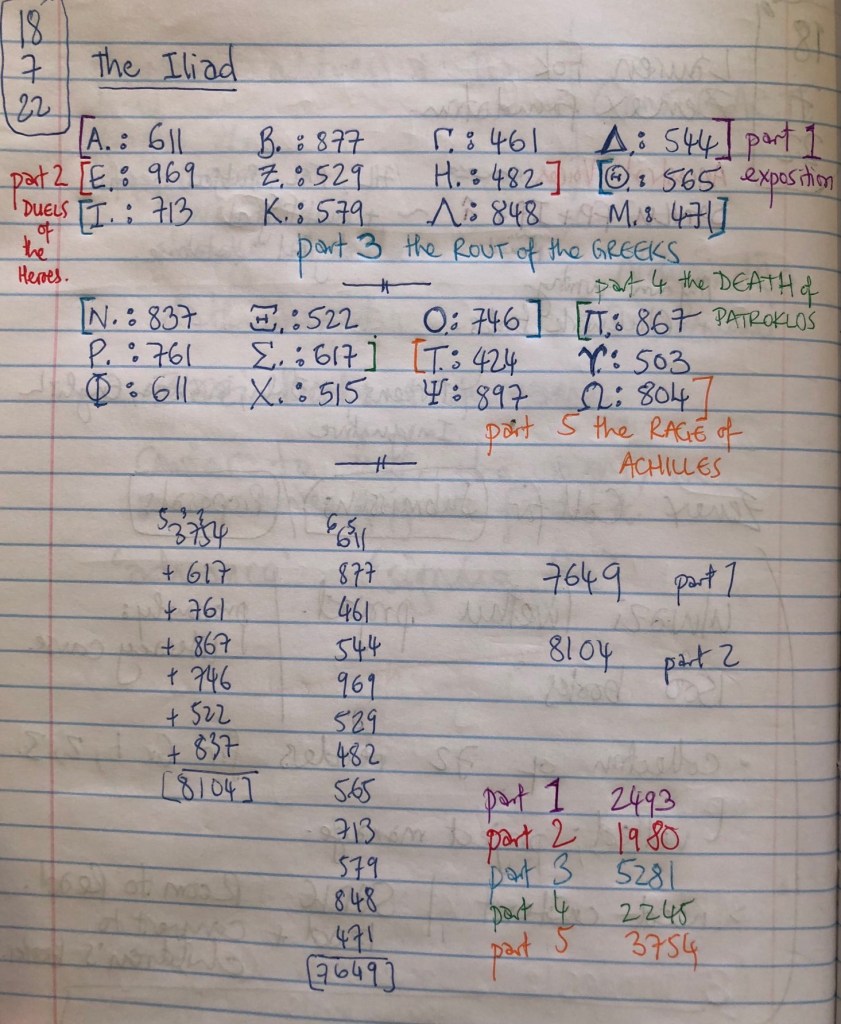 18
7
22
The Iliad
[A.: 611 B.: 877 Γ.: 461 Δ.: 544] part 1
part 2 [E.: 969 Z.: 529 H.: 482] [Θ.: 565 exposition
DUELS of the Heroes. [I.: 713 K.: 579 Λ: 848 M.: 471]
part 3 the ROUT of the GREEKS
part 4 the DEATH of
[N.: 837 Ξ.: 522 O.: 746] [Π.: 867 PATROKLOS
P.: 761 Σ.: 617] [T.: 424 Υ: 503
Φ: 611 X.: 515 Ψ: 897 Ω: 804]
part 5 the RAGE of
ACHILLES
3754 611
+ 617 877 7649 part 1
+ 761 461
+ 867 544 8104 part 2
+ 746 969
+ 522 529
+ 837 482
[8104] 565 part 1 2493
713 part 2 1980
579 part 3 5281
848 part 4 2245
471 part 5 3754
[7649]